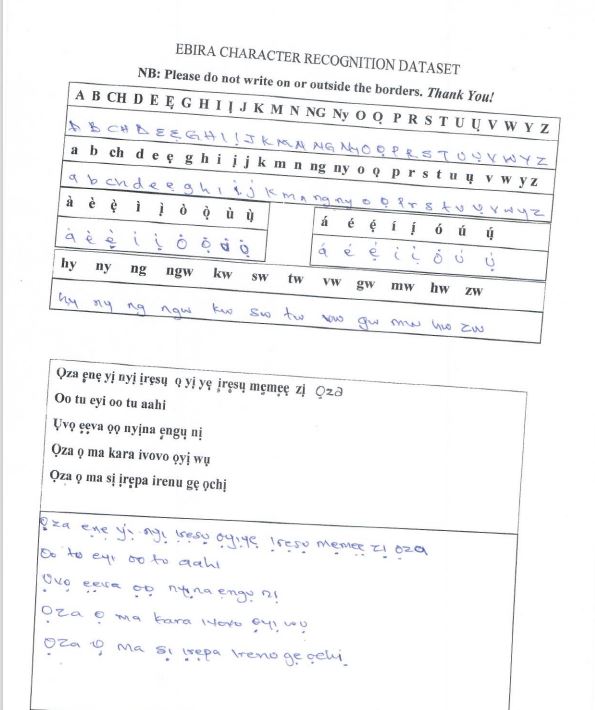 EBIRA CHARACTER RECOGNITION DATASET
NB: Please do not write on or outside the borders. Thank You!
A B CH D E Ẹ G H I Ị J K M N NG Ny O Ọ P R S T U Ụ V W Y Z
A B CH D E Ẹ G H I Ị J K M N NG Ny O Ọ P R S T U Ụ V W Y Z
a b ch d e ẹ g h i ị j k m n ng ny o ọ p r s t u ụ v w y z
a b ch d e ẹ g h i ị j k m n ng ny o ọ p r s t u ụ v w y z
à è ẹ̀ ì ị̀ ò ọ̀ ù ụ̀
à è ẹ̀ ì ị̀ ò ọ̀ ù ụ̀
á é ẹ́ í ị́ ó ú ụ́
á é ẹ́ í ị́ ó ú ụ́
hy ny ng ngw kw sw tw vw gw mw hw zw
hy ny ng ngw kw sw tw vw gw mw hw zw
Ọza ẹnẹ yị nyị irẹsụ ọ yị yẹ ịrẹsụ mẹmẹẹ zị Ọza
Oo tu eyi oo tu aahi
Ụvọ ẹẹva ọọ nyịna ẹngụ nị
Ọza ọ ma kara ivovo ọyị wụ
Ọza ọ ma sị ịrẹpa irenu gẹ ọchị
Ọza ẹnẹ yị nyị Irẹsụ ọyịyẹ Irẹsụ mẹmẹẹ zị ọza
Oo tu eyi oo tu aahi
Ụvọ ẹẹva ọọ nyịna ẹngụ nị
Ọza ọ ma kara ivovo ọyị wụ
Ọza ọ ma sị ịrẹpa Irenu gẹ ọchị